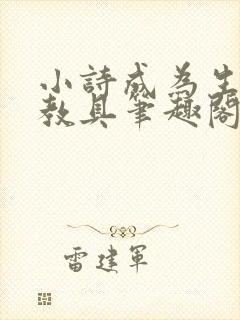 小詩成為生
教具筆趣閣
雷建軍